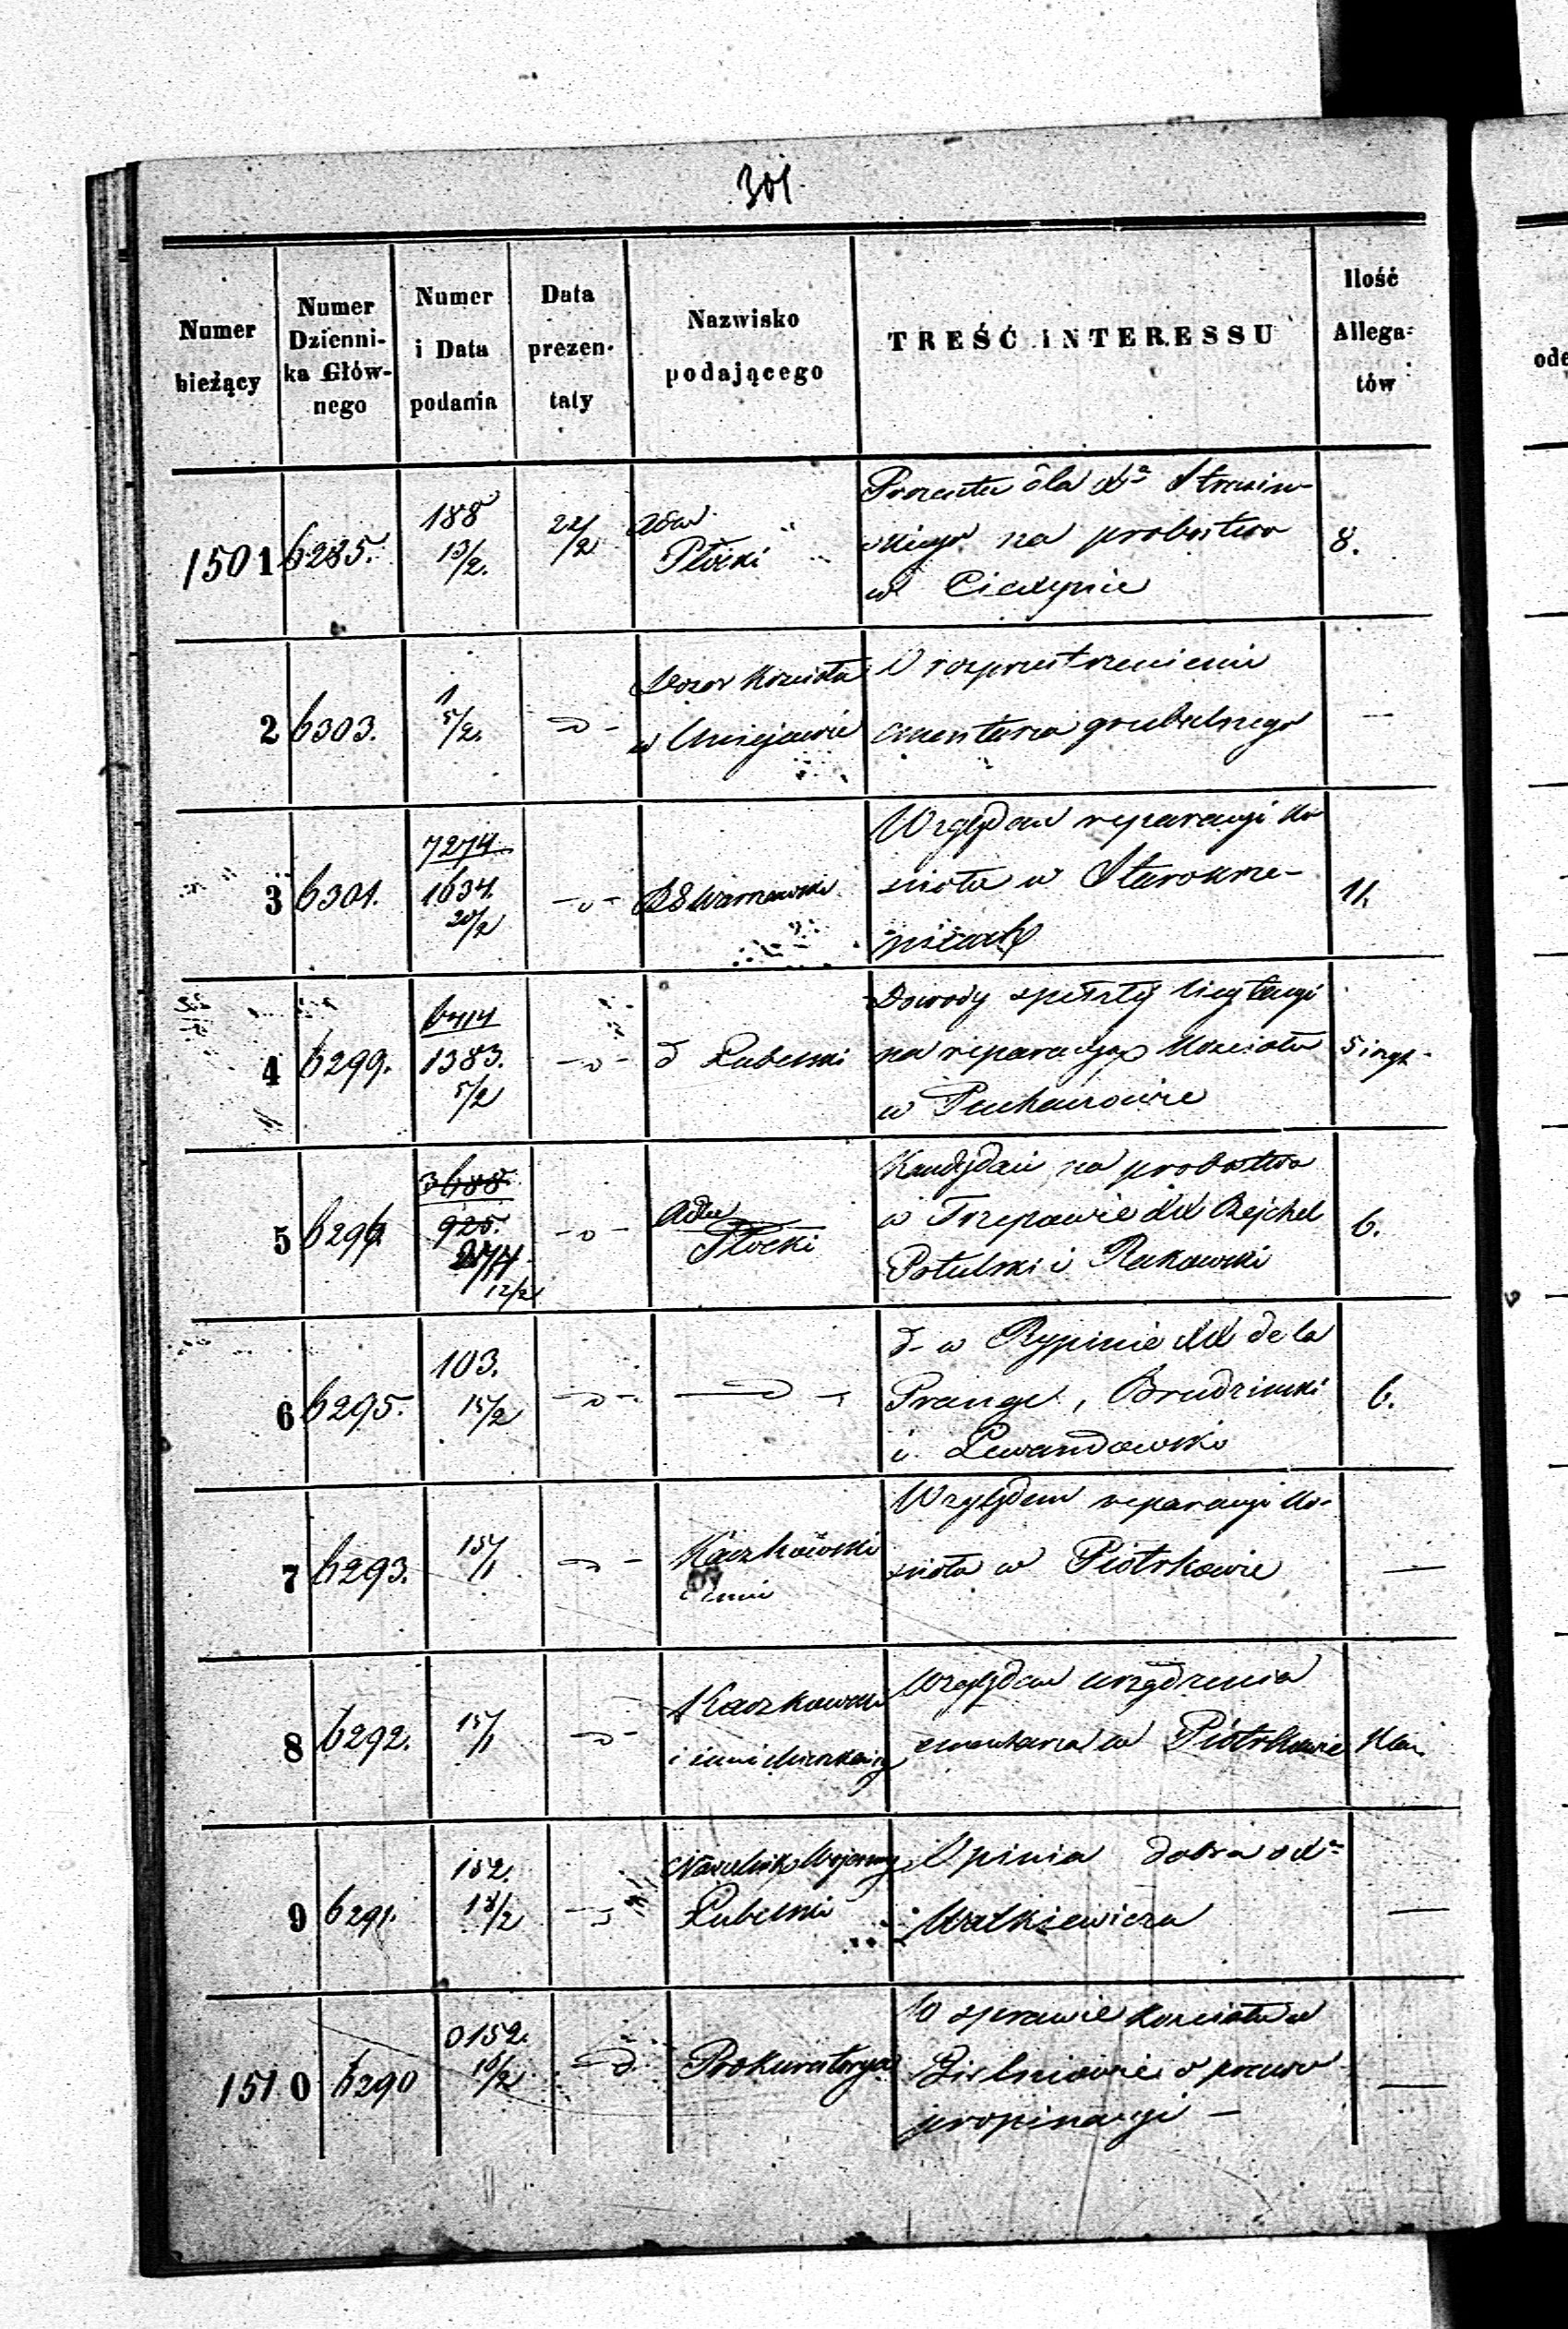 301.
Numer bieżący
Numer Dzienni-ka Głów-nego
Numer i Data podania
Data prezen-taty
Nazwisko podającego
TREŚĆ INTERESSU
Ilość Allega-tów
1501 6285. 188 13/2. 22/2 Płocki
na probostwo
w
8.
2 6303. 1 5/2. Dozor Kościoła
w
O rozprzestrzenieniu
cmentarza grzebalnego
—
3 6301. 7274 1634. 20/2 Warszawski
Względem reparacyi Ko-
ścioła w Starokrze-
picach
11.
4 6299. 1383. 5/2 d Lubelski
Dowody spełzłej licytacyi
na reparacyą Kościoła
w
5
5 3688. 925. 12/2 Płocki
Kandydaci na probostwo
w XX Rejchel
Potulski i Rakowski
6.
6 6295. 103. 15/2
d- w Rypinie XX de la
Prange, Brudzinski
i Lewandowski
6.
7 6293. 15/1 Kaczkowski
i inni
Względem reparacyi Ko-
ścioła w Piotrkowie
—
8 6292. 15/1 Kaczkowski
i inni
Względem urządzenia
cmentarza w Piotrkowie
9 6291. 152. 18/2 Naczelnik Wojenny
Lubelski
Opinia dobra o Xe
—
1510 6290 0152. 16/2 Prokuratorya
W sprawie Kościoła w
Zielniowie o prawo
propinacyi —
—